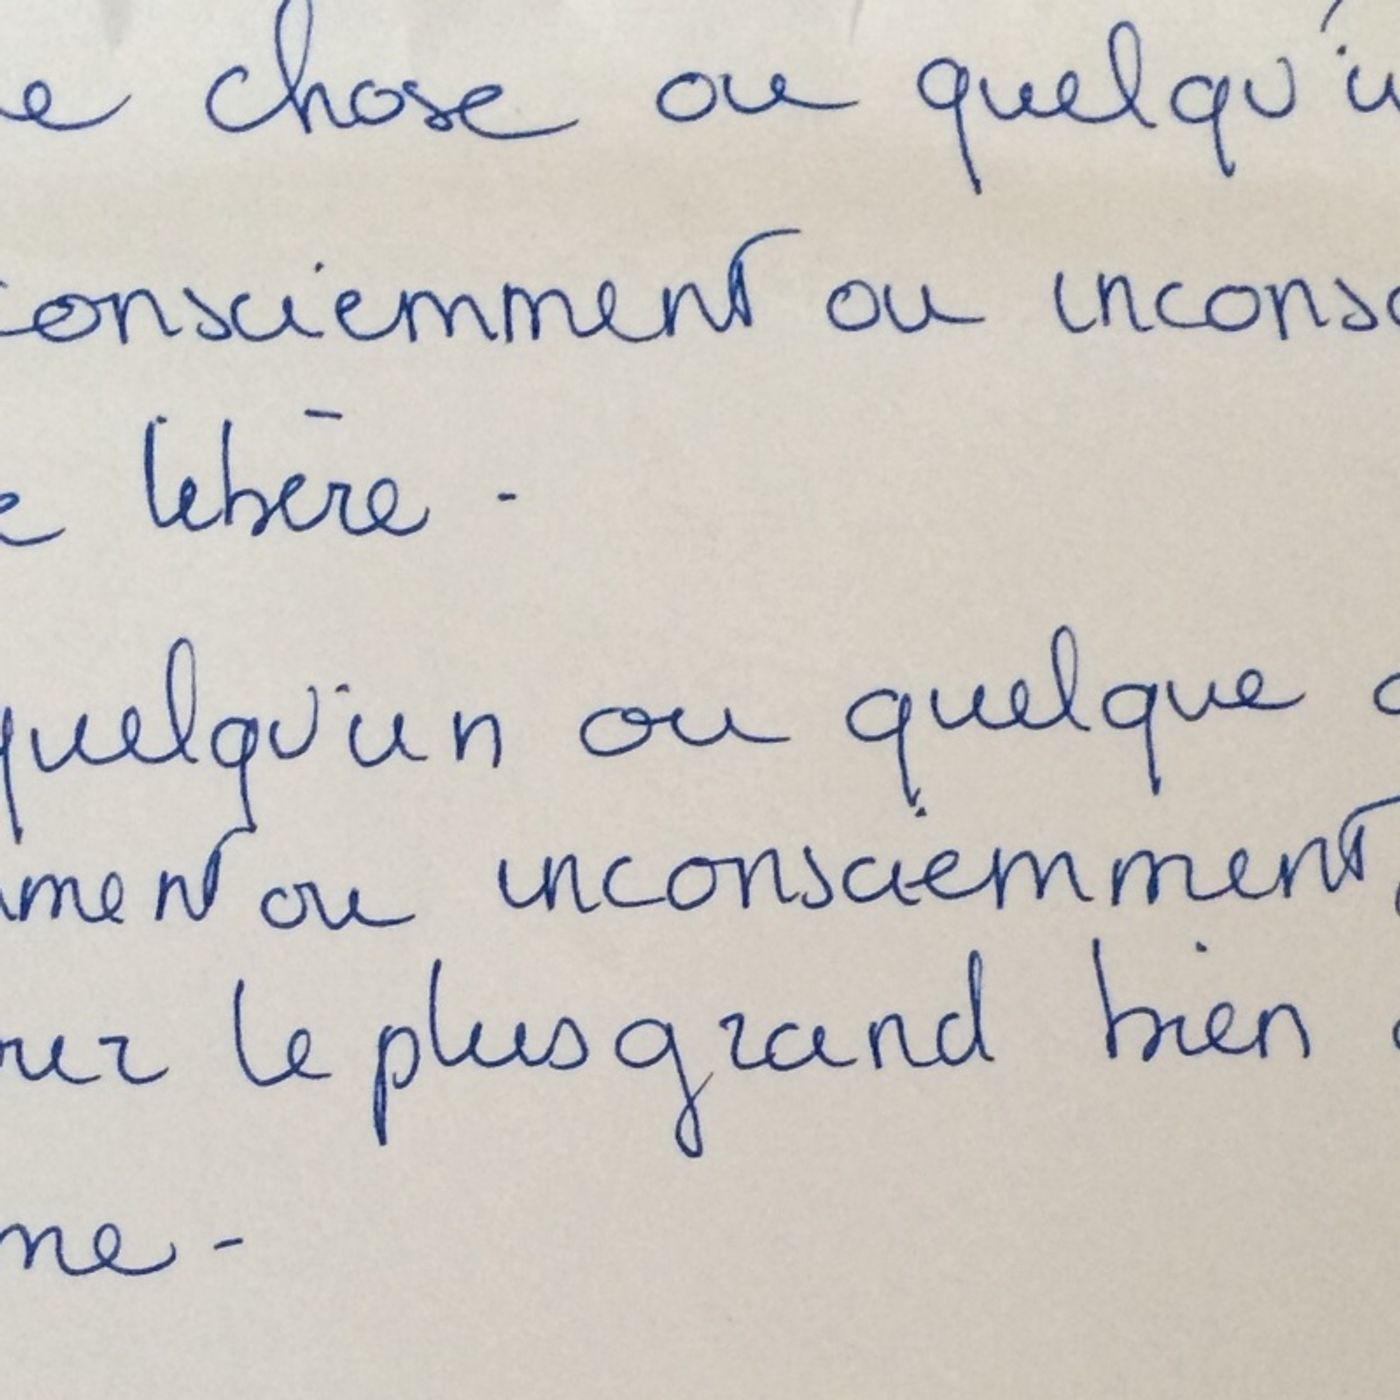 e chose ou quelqu'u
consciemment ou inconsc
e libère -
quelqu'un ou quelque c
mment ou inconsciemment,
our le plus grand bien
me -